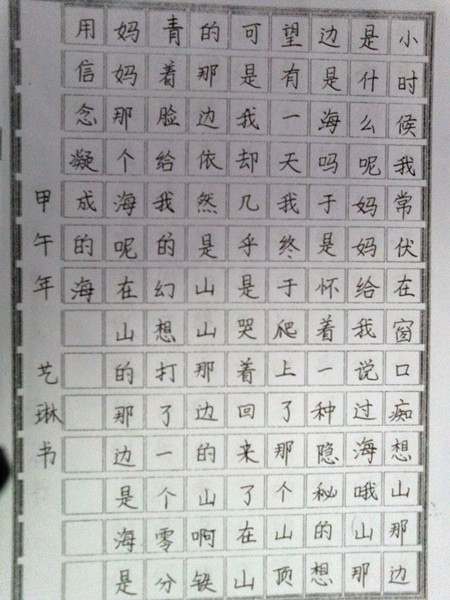 小时候我常伏在窗口痴想山那边
是什么呢妈妈给我说过海哦山那
边是海吗于是怀着一种隐秘的想
望有一天我终于爬上了那个山顶
可是我却几乎是哭着回来了在山
的那边依然是山山那边的山啊铁
青着脸给我的幻想打了一个零分
妈妈那个海呢在山的那边是海是
用信念凝成的海
甲午年 艺琳书